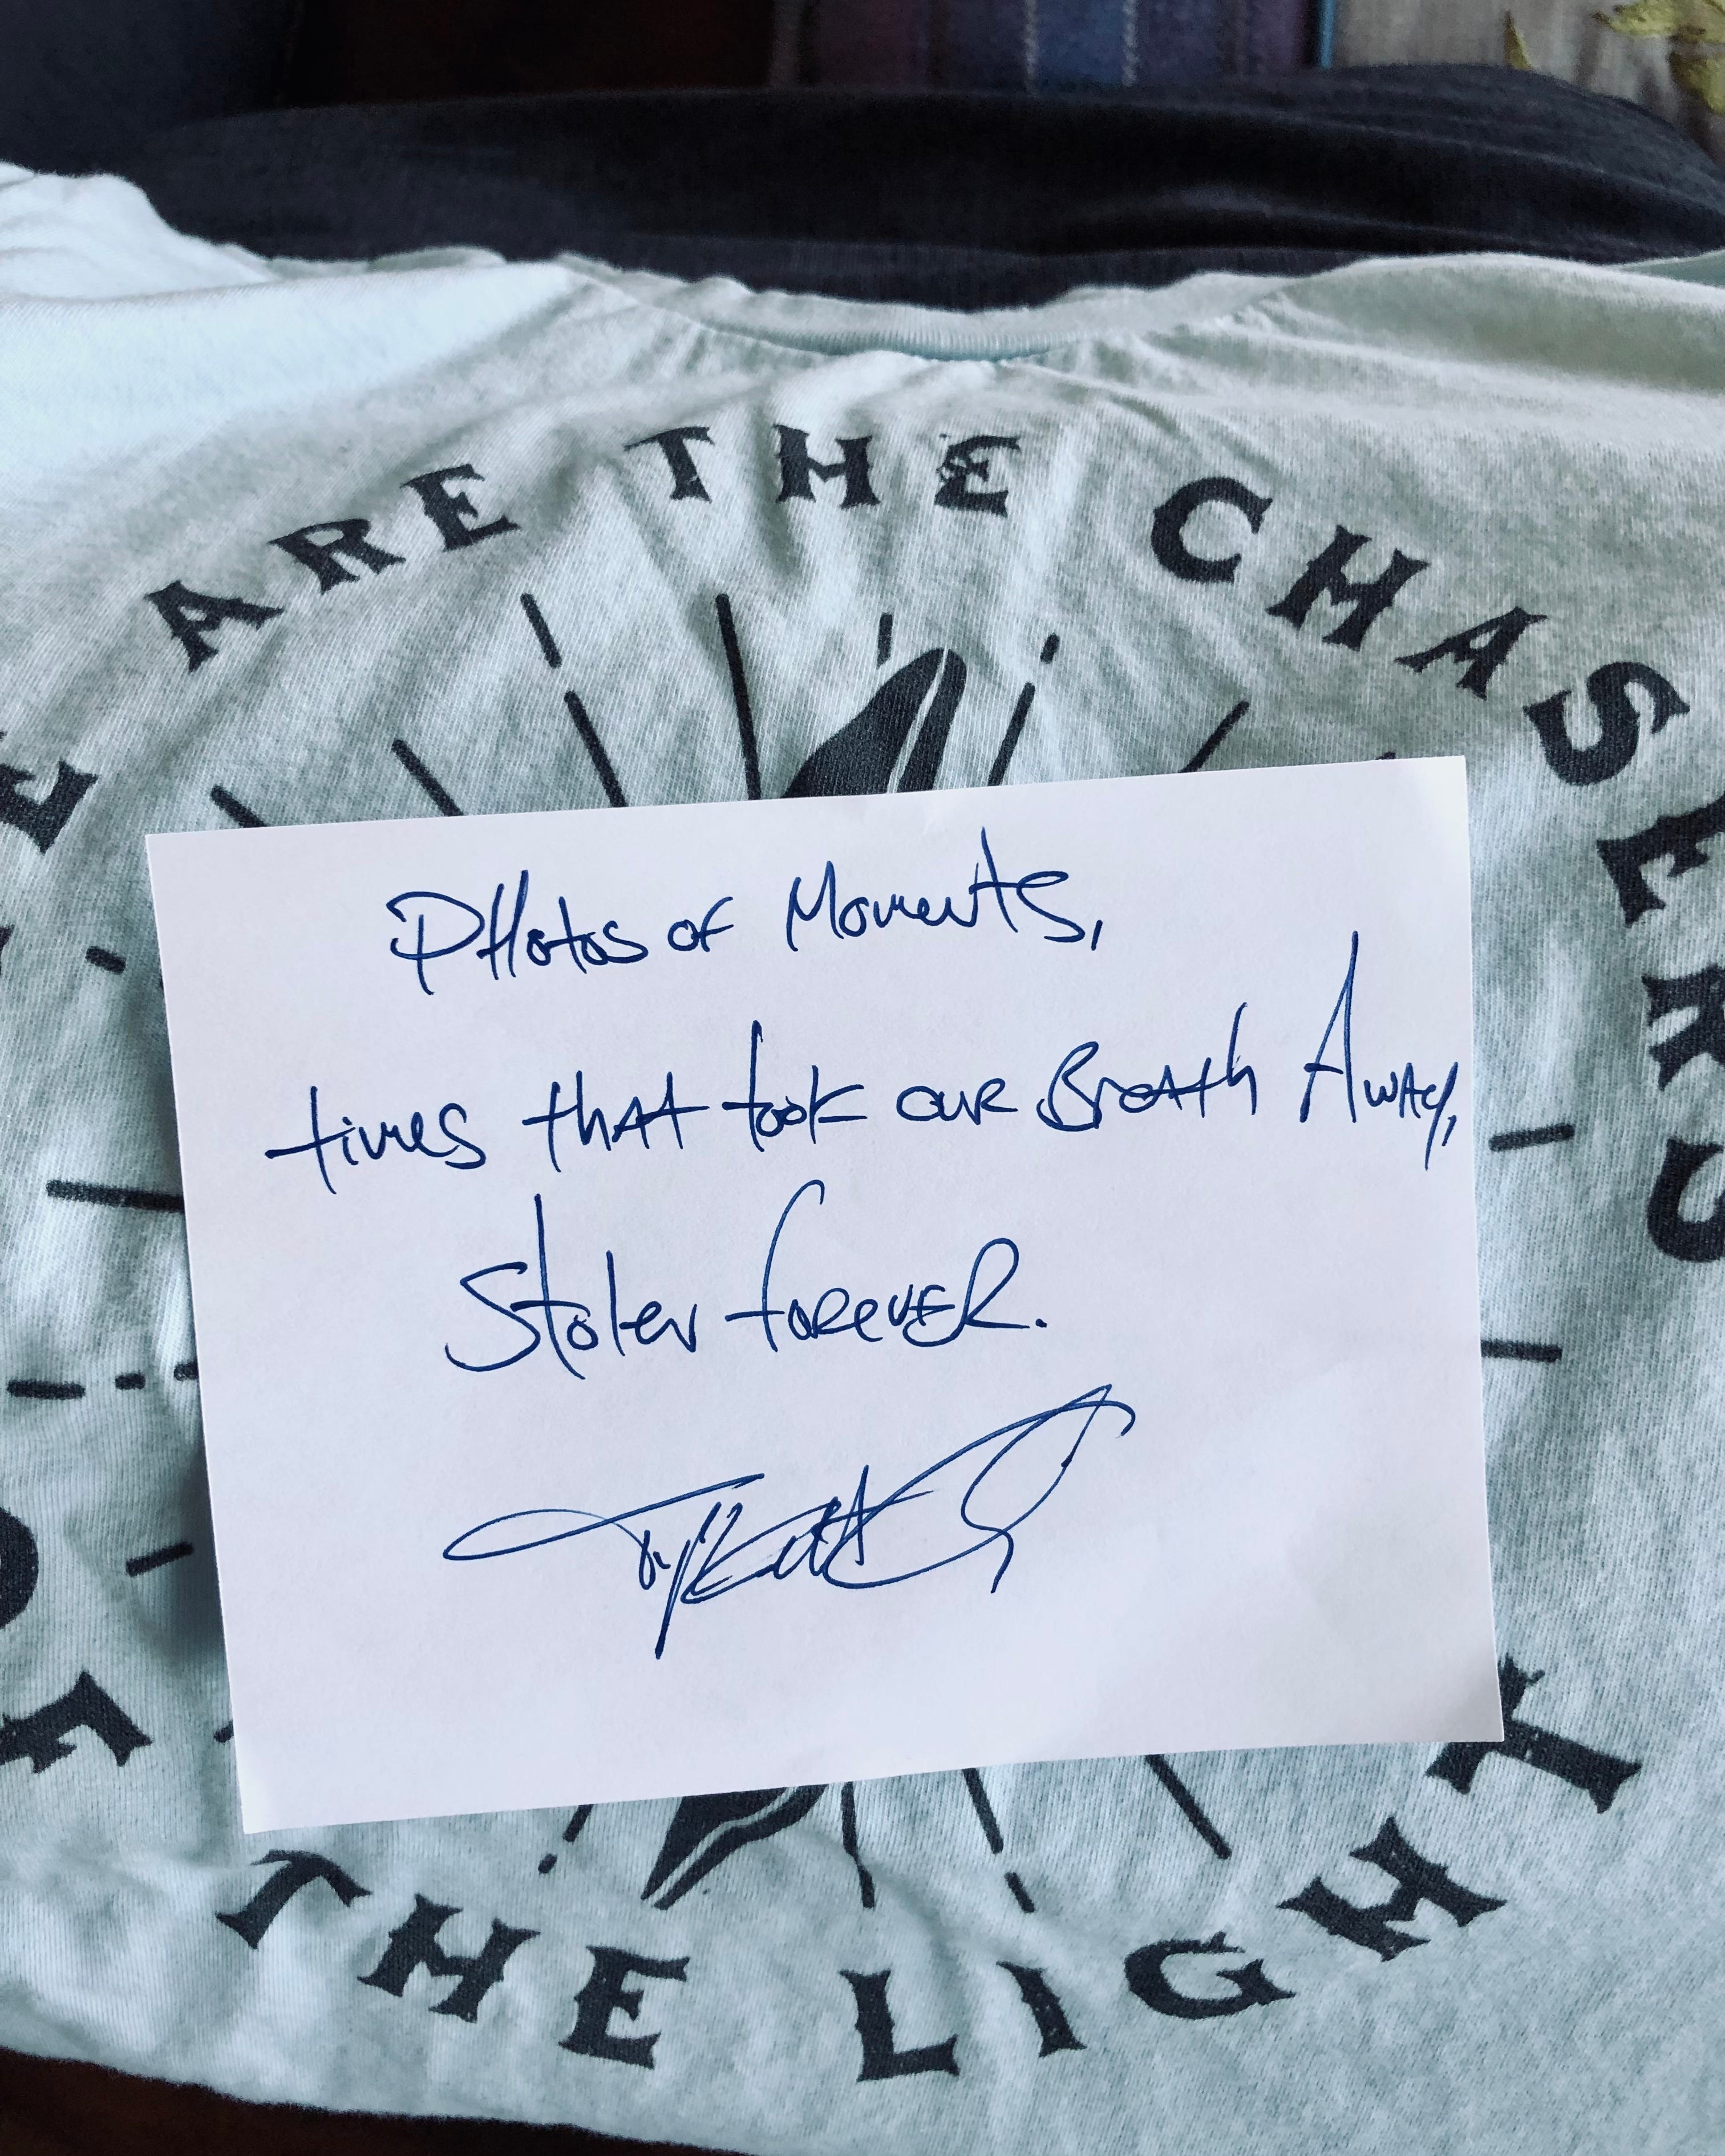 ARE THE CHASERS
OF THE LIGHT
PHotos of Moments,
times that took our Breath Away,
Stolen forever.